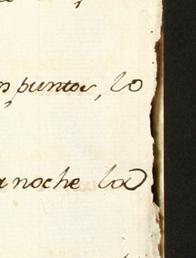 puntos, lo
noche los